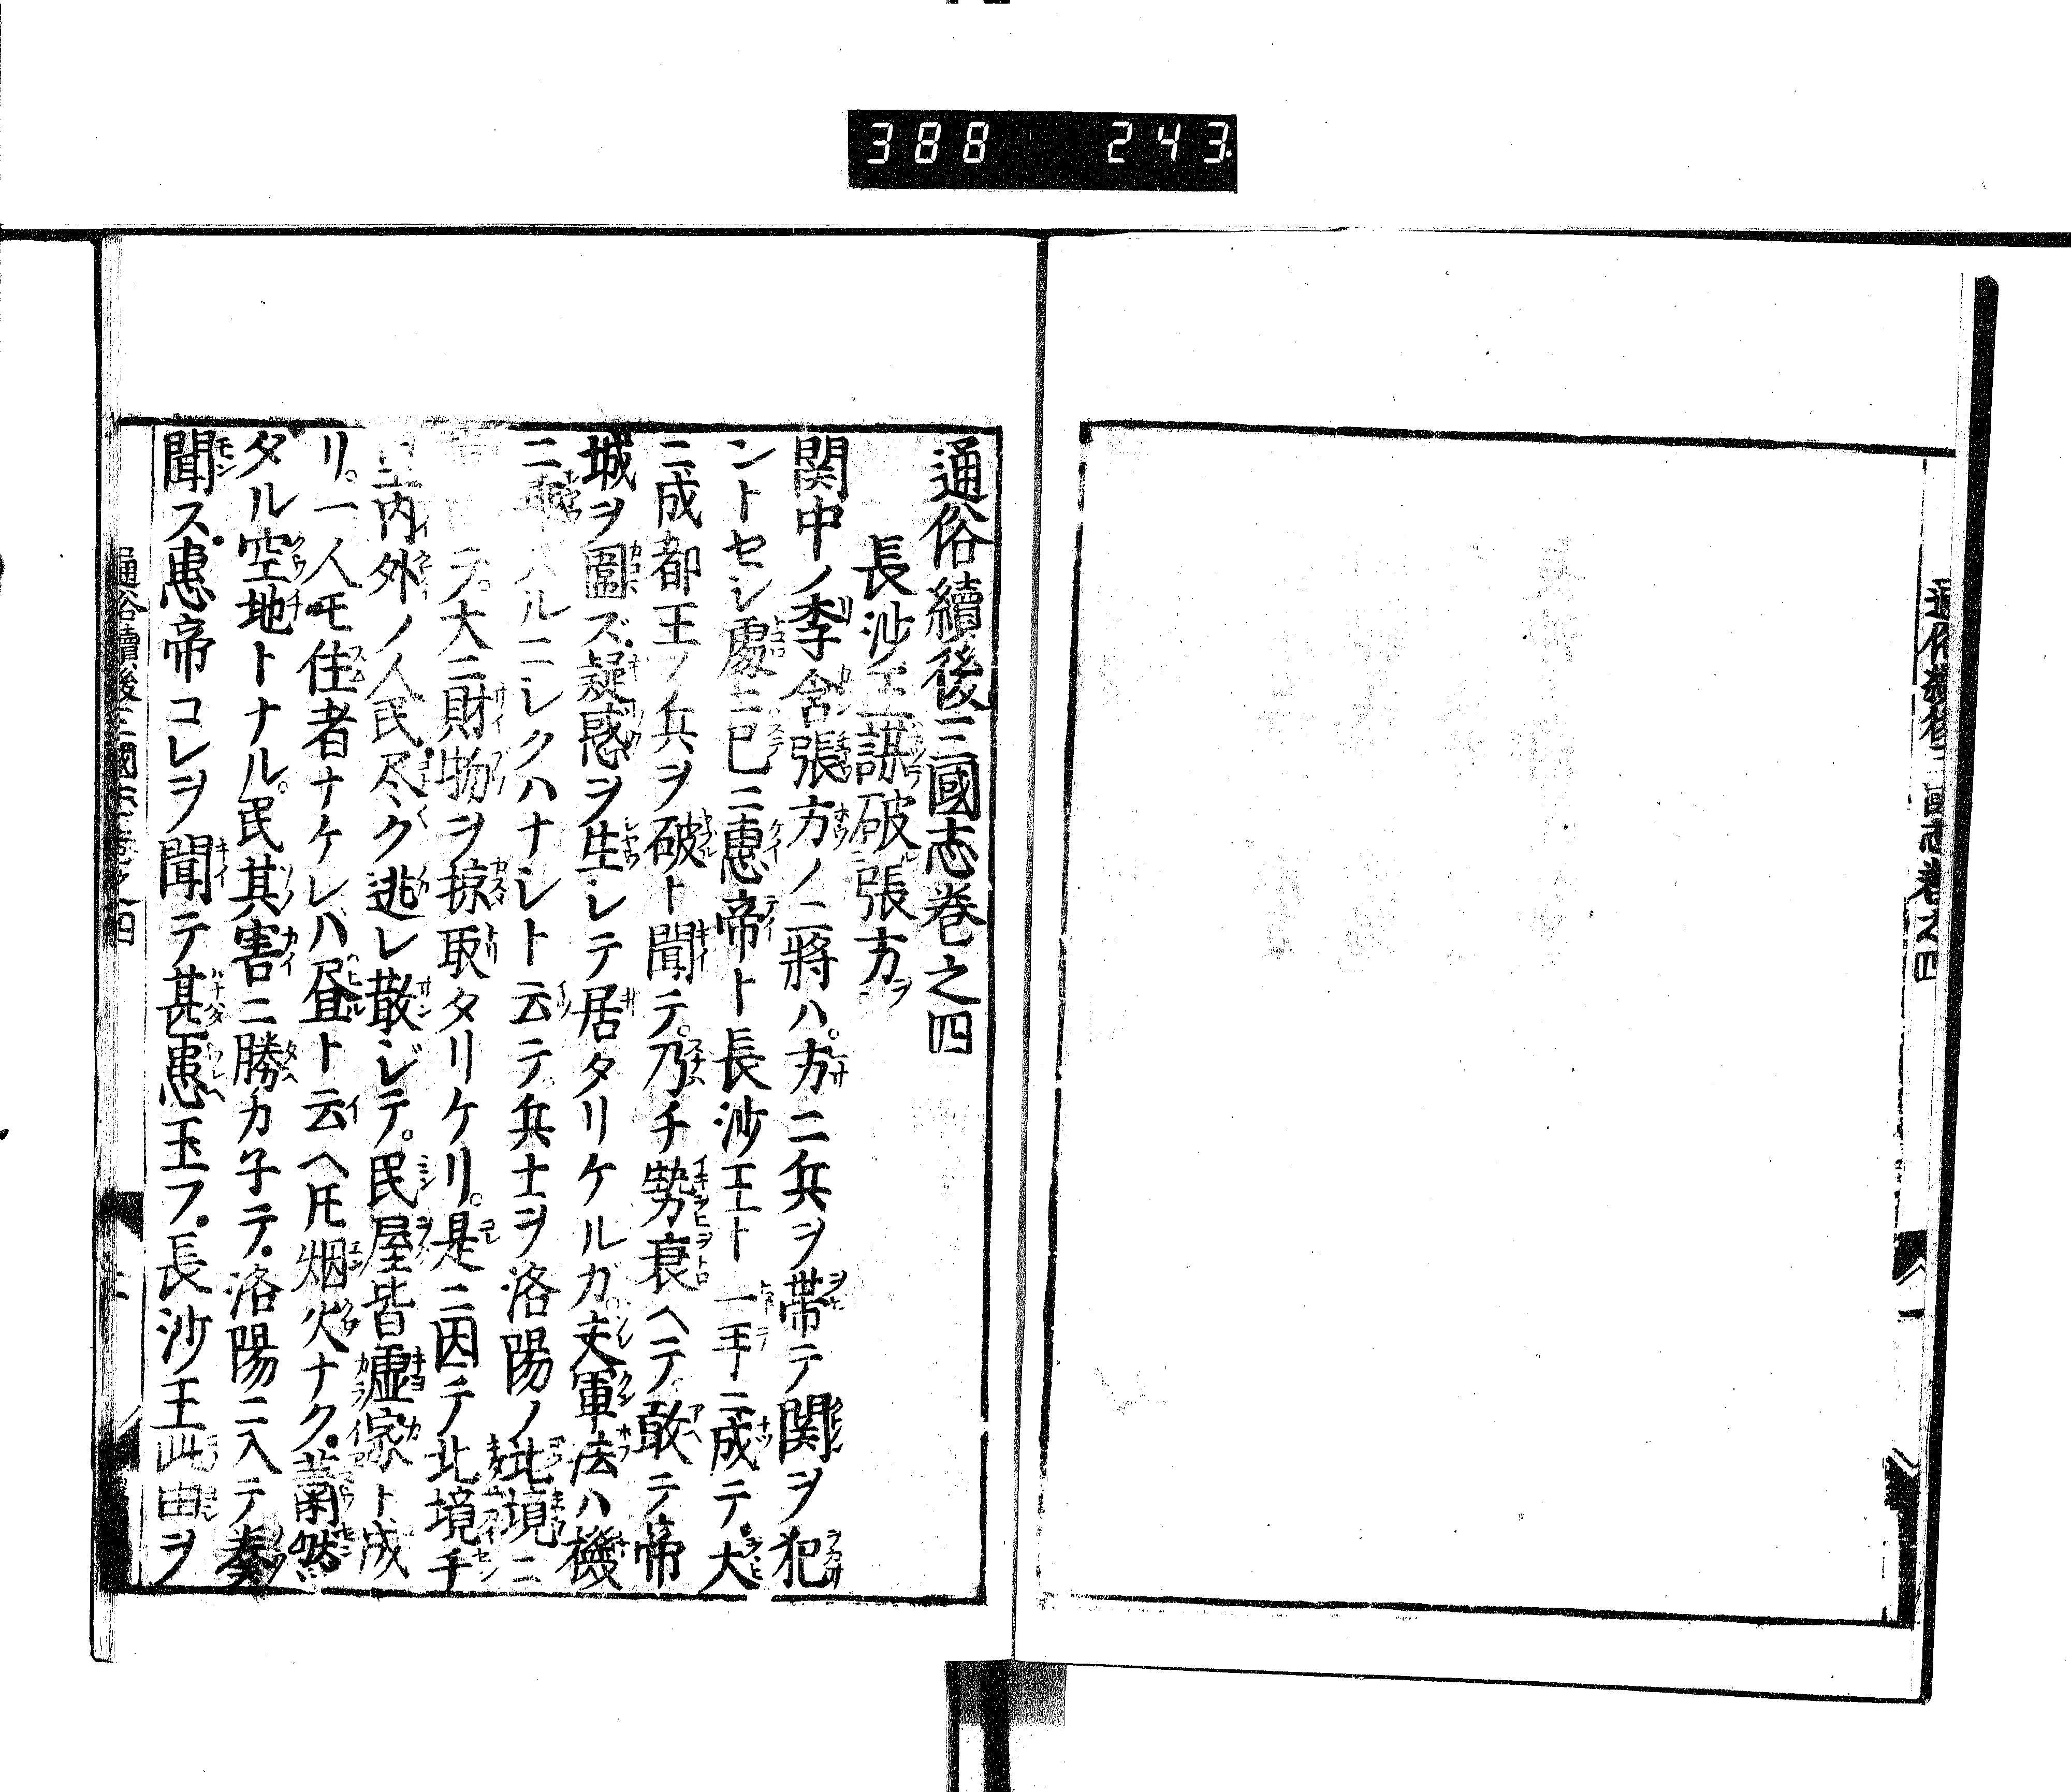 388 243
通俗續後三國志巻之四
長沙王謀破張方ヲ
関中ノ李含張方ノ二将ハ。方ニ兵ヲ帯テ関ヲ犯
ントセシ處ニ已ニ惠帝ト長沙王ト一手ニ成テ。大
ニ成都王ノ兵ヲ破ト聞テ。乃チ勢衰ヘテ敢テ帝
城ヲ圍ズ。疑惑ヲ生レテ居タリケルガ。夫軍法ハ機
ニ ルニレクハナシト云テ兵士ヲ洛陽ノ北境ニ
テ。大ニ財物ヲ掠取タリケリ。是ニ因テ北境手
内外ノ人民尽ク逃レ散ジテ。民屋皆虚家ト成
リ。一人モ住者ナケレバ昼ト云ヘ𪜈烟火ナク。蕭然
タル空地トナル。民其害ニ勝カ子テ。洛陽ニ入テ奏
聞ス。惠帝コレヲ聞テ甚患玉フ。長沙王此由ヲ
通俗續後三國志巻之四
通俗續後三國志巻之四
一